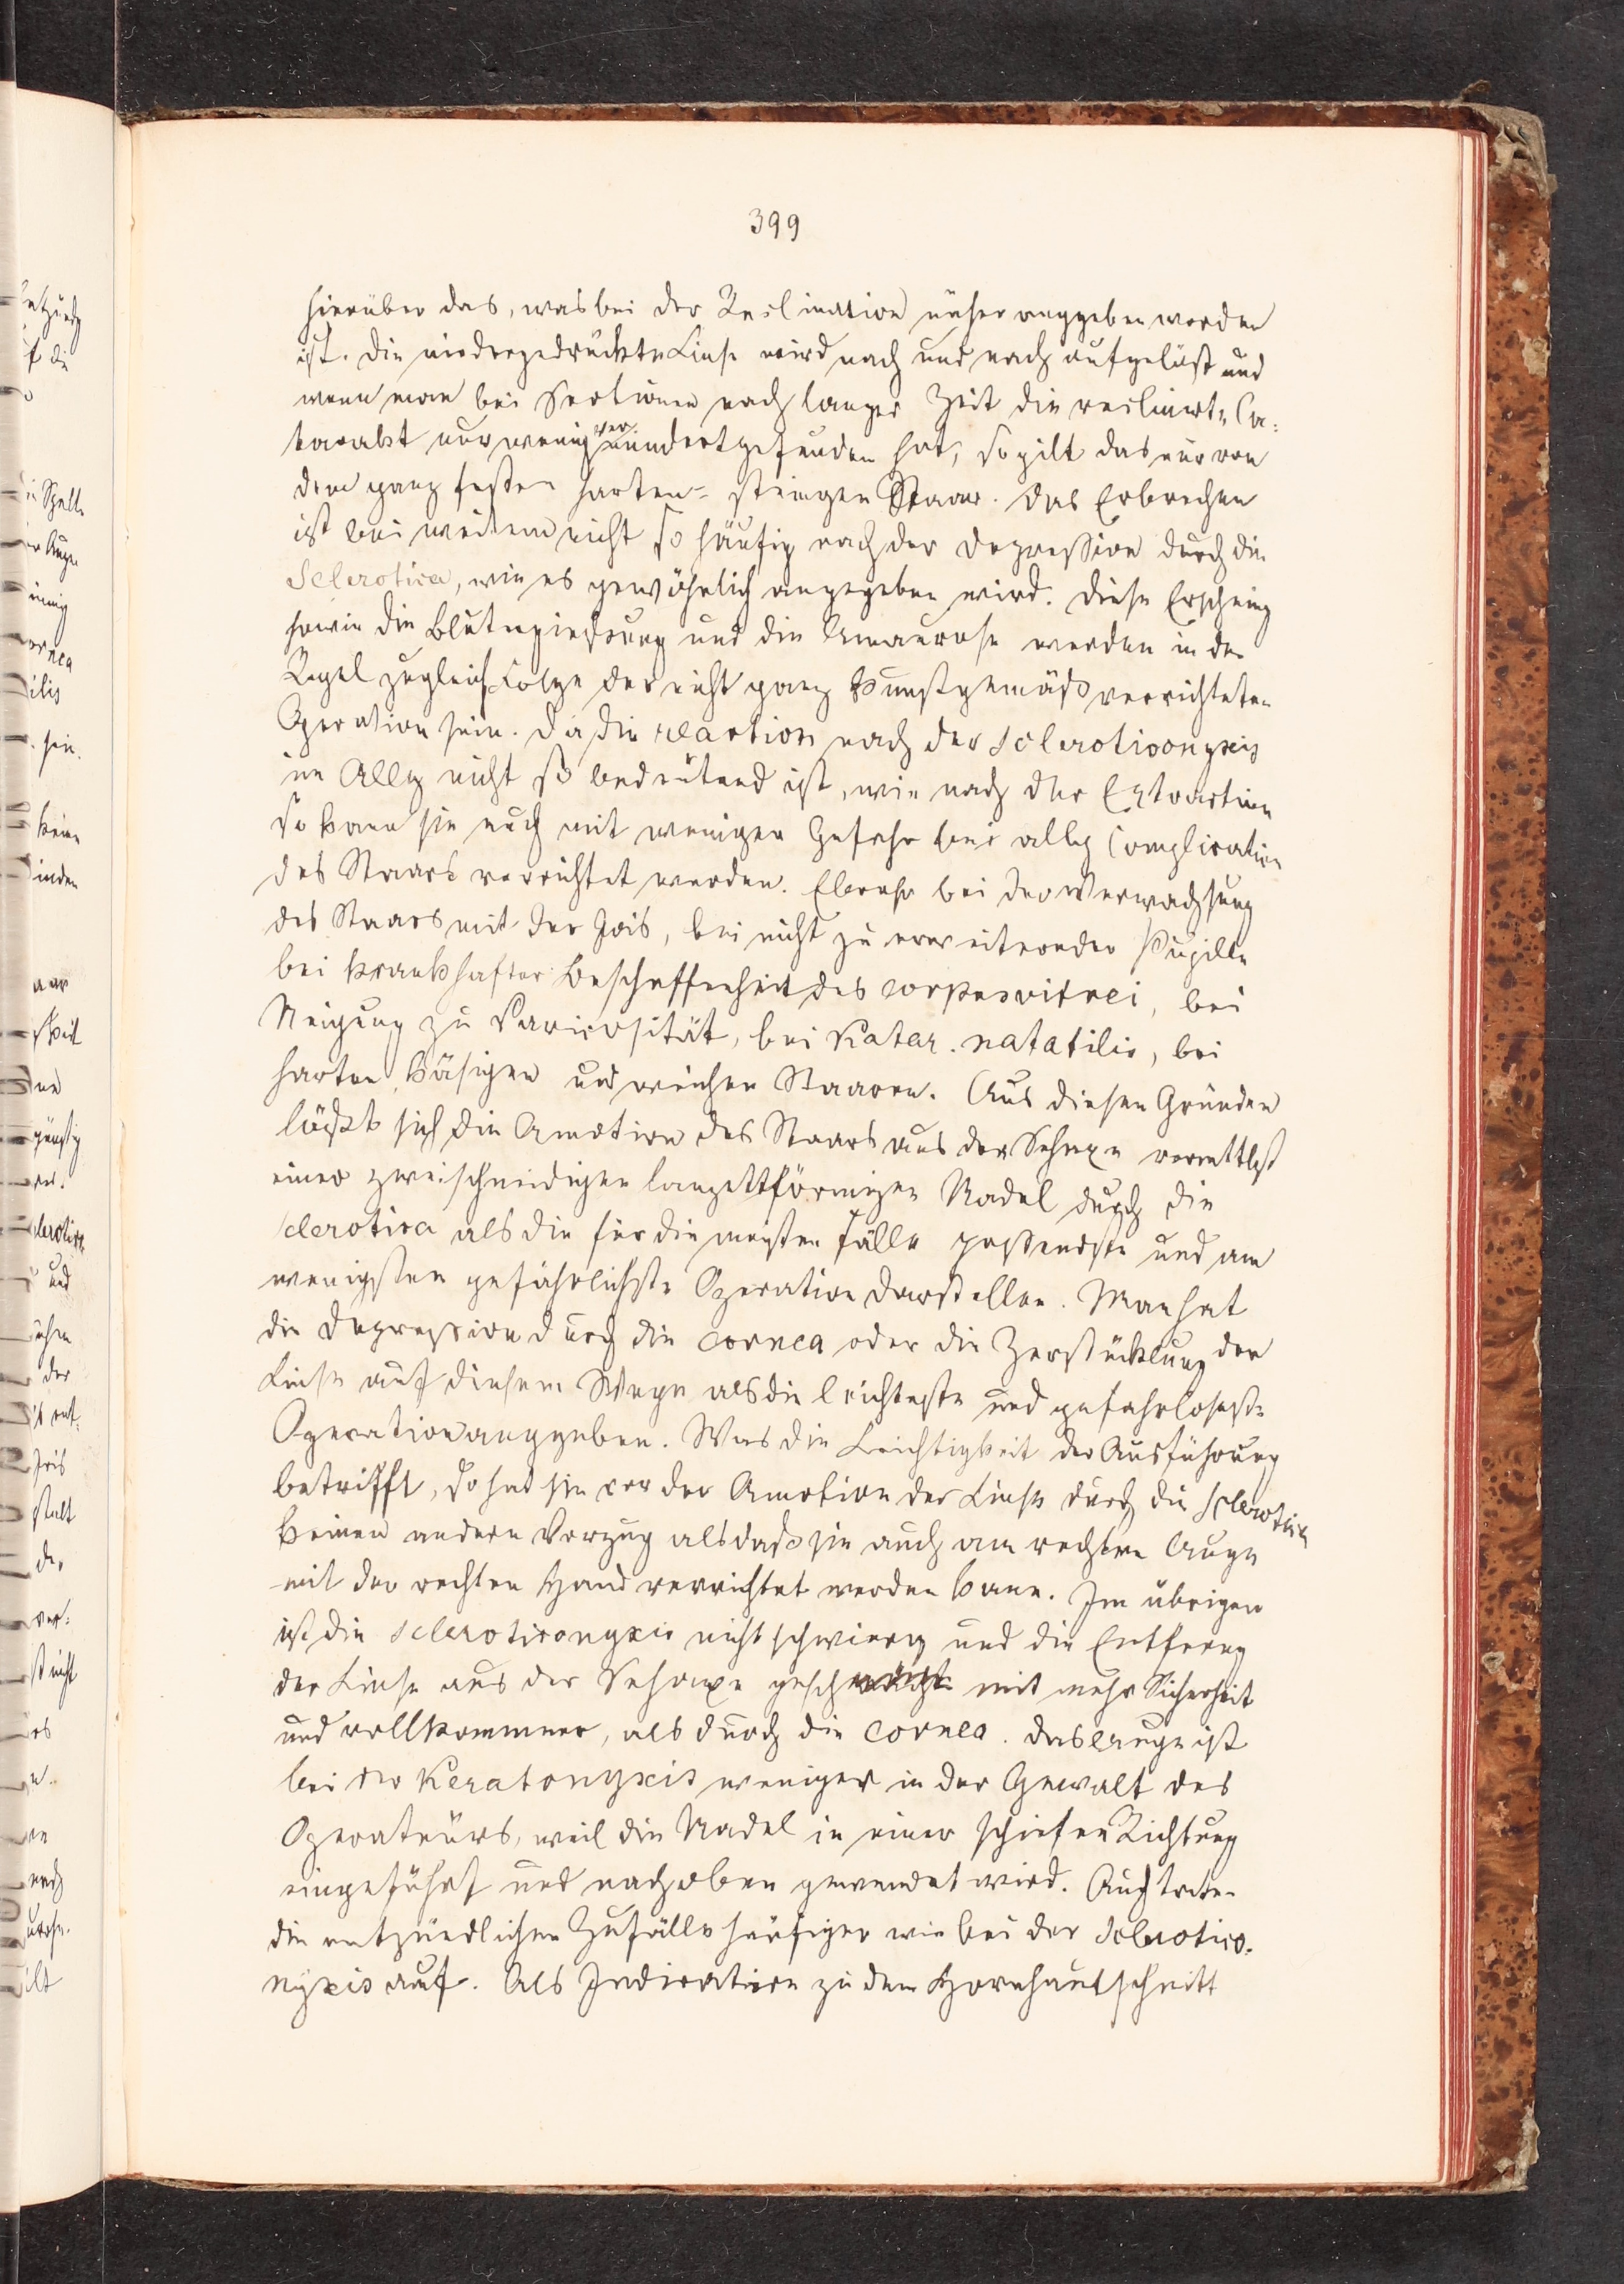 399
hierüber das, was bei der Reclination näher anggeben worden
ist. Die niedergedrückte Linse wird nach und nach aufgelöst und
wenn man bei Sectionen nach langer Zeit die reclinirte Ca-
tarakt nur wenig verändert gefunden hat, so gilt das nur von
dem ganz festen harten- steinigen Staar. Das Erbrechen
ist bei weitem nicht so häufig nach der Depression durch die
Sclerotica, wie es gewöhnlich angegeben wird. Diese Erscheing
sowie die Blutergießung und die Amaurose werden in der
Regel zugleich Folge der nicht ganz kunstgemäß verrichteten
Operation sein. Da die reaction nach der Scleroticonyxis
im Allg nicht so bedeutend ist, wie nach der Extraction
so kann sie auch mit weniger Gefahr bei allen Complication
des Staars verrichtet werden. Ebenso bei der Verwachsung
des Staars mit der Iris, bei nicht zu erweiternder Pupille
bei krankhafter Beschaffenheit des corporis vitrei, bei
Neigung zu Varicosität, bei Katar. natatilis, bei
harten käsigen und weichen Staaren. Aus diesen Gründen
läßt sich die Amotion des Staars aus der Sehaxe vermittlst
einer zweischneidigen lanzettförmigen Nadel durch die
sclerotica als die für die meisten Fälle passendste und am
wenigsten gefährlichste Operation darstellen. Man hat
die Depression durch die cornea oder die Zerstücklung der
Linse auf diesem Wege als die leichteste und gefahrloseste
Operation anggeben. Was die Leichtigkeit der Ausführung
betrifft, so hat sie vor der Amotion der Linse durch die Sclerotica
keinen andern Vorzug als daß sie auch am rechten Auge
mit der rechten Hand verrichtet werden kann. Im übrigen
ist die scleroticonyxis nicht schwierig und die Entferng
der Linse aus der Sehaxe geschieht mit mehr Sicherheit
und vollkommner, als durch die cornea. Das Auge ist
bei der Keratonyxis weniger in der Gewalt des
Operateurs, weil die Nadel in einer schiefen Richtung
eingeführt und nach oben gewendet wird. Auch treten
die entzündlichen Zufälle häufiger wie bei der Sclerotico-
nyxis auf. Als Indication zu dem Hornhautschnitt